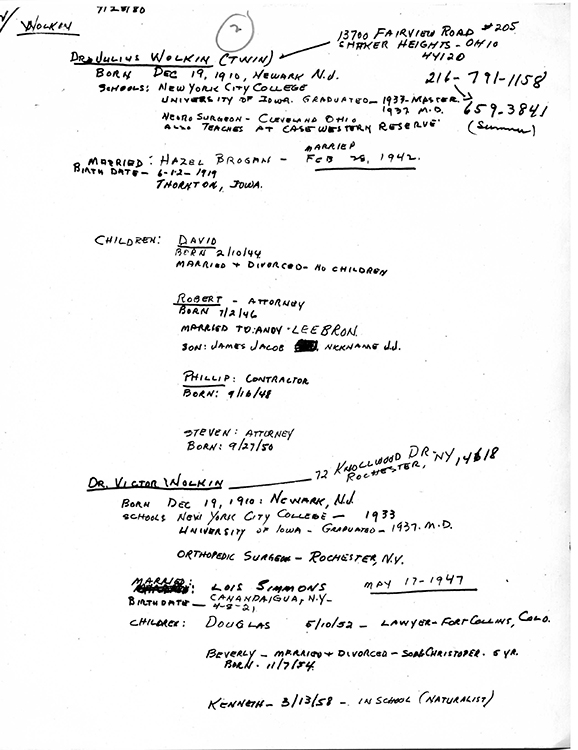 7/28/80
WOLKIN
2
DR. JULIUS WOLKIN (TWIN)
13700 FAIRVIEW ROAD #205
SHAKER HEIGHTS - OHIO
44120
BORN DEC 19, 1910, NEWARK N.J.
216-791-1158
SCHOOLS: NEW YORK CITY COLLEGE
UNIVERSITY OF IOWA. GRADUATED - 1937-MASTER.
1937 M.D.
659-3841
(Summer)
NEURO SURGEON - CLEVELAND OHIO
ALSO TEACHES AT CASE WESTERN RESERVE
MARRIED: HAZEL BROGAN - MARRIED
FEB 28, 1942.
BIRTH DATE - 6-12-1919
THORNTON, IOWA.
CHILDREN: DAVID
BORN 2/10/44
MARRIED + DIVORCED - NO CHILDREN
ROBERT - ATTORNEY
BORN 7/2/46
MARRIED TO: ANDY - LEEBRON.
SON: JAMES JACOB NICKNAME J.J.
PHILLIP: CONTRACTOR
BORN: 9/16/48
STEVEN: ATTORNEY
BORN: 9/27/50
DR. VICTOR WOLKIN
72 KNOLLWOOD DR.
ROCHESTER, NY, 14618
BORN DEC 19, 1910: NEWARK, N.J.
SCHOOLS NEW YORK CITY COLLEGE - 1933
UNIVERSITY OF IOWA - GRADUATED - 1937. M.D.
ORTHOPEDIC SURGEON - ROCHESTER, N.Y.
MARRIED: LOIS SIMMONS MAY 17-1947
CANANDAIGUA, N.Y.
BIRTHDATE - 4-8-21
CHILDREN: DOUGLAS 5/10/52 - LAWYER - FORT COLLINS, COLO.
BEVERLY - MARRIED + DIVORCED - SON CHRISTOPER. 5 YR.
BORN. 11/7/54
KENNETH - 3/13/58 - IN SCHOOL (NATURALIST)